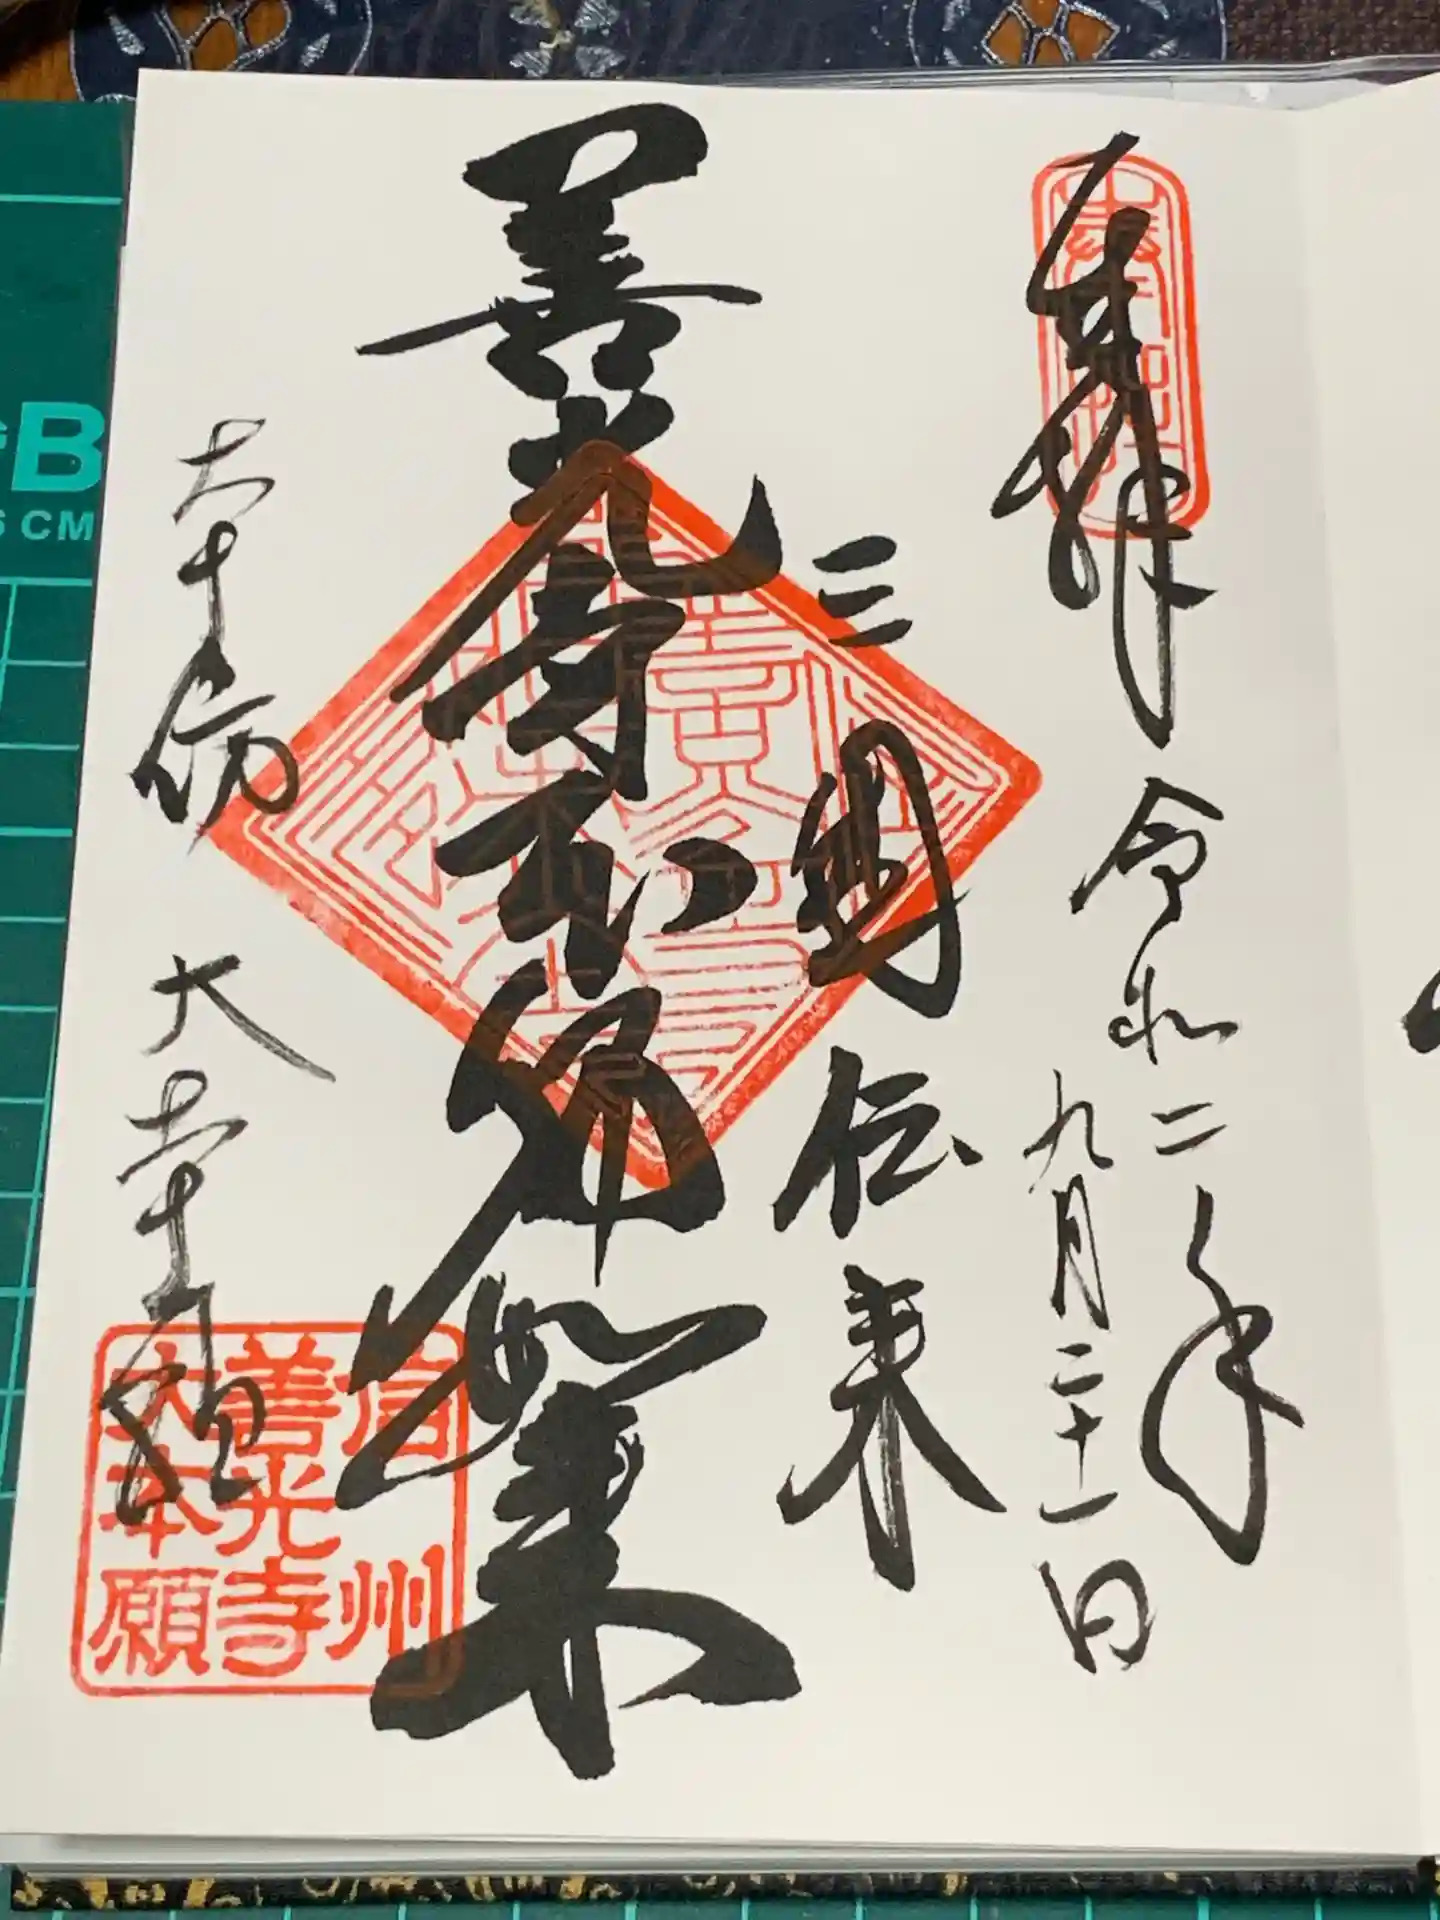 奉拝
令和二年
九月二十一日
三國伝来
善光寺
如来
本坊 大本願
信州
善光寺
大本願
B
CM